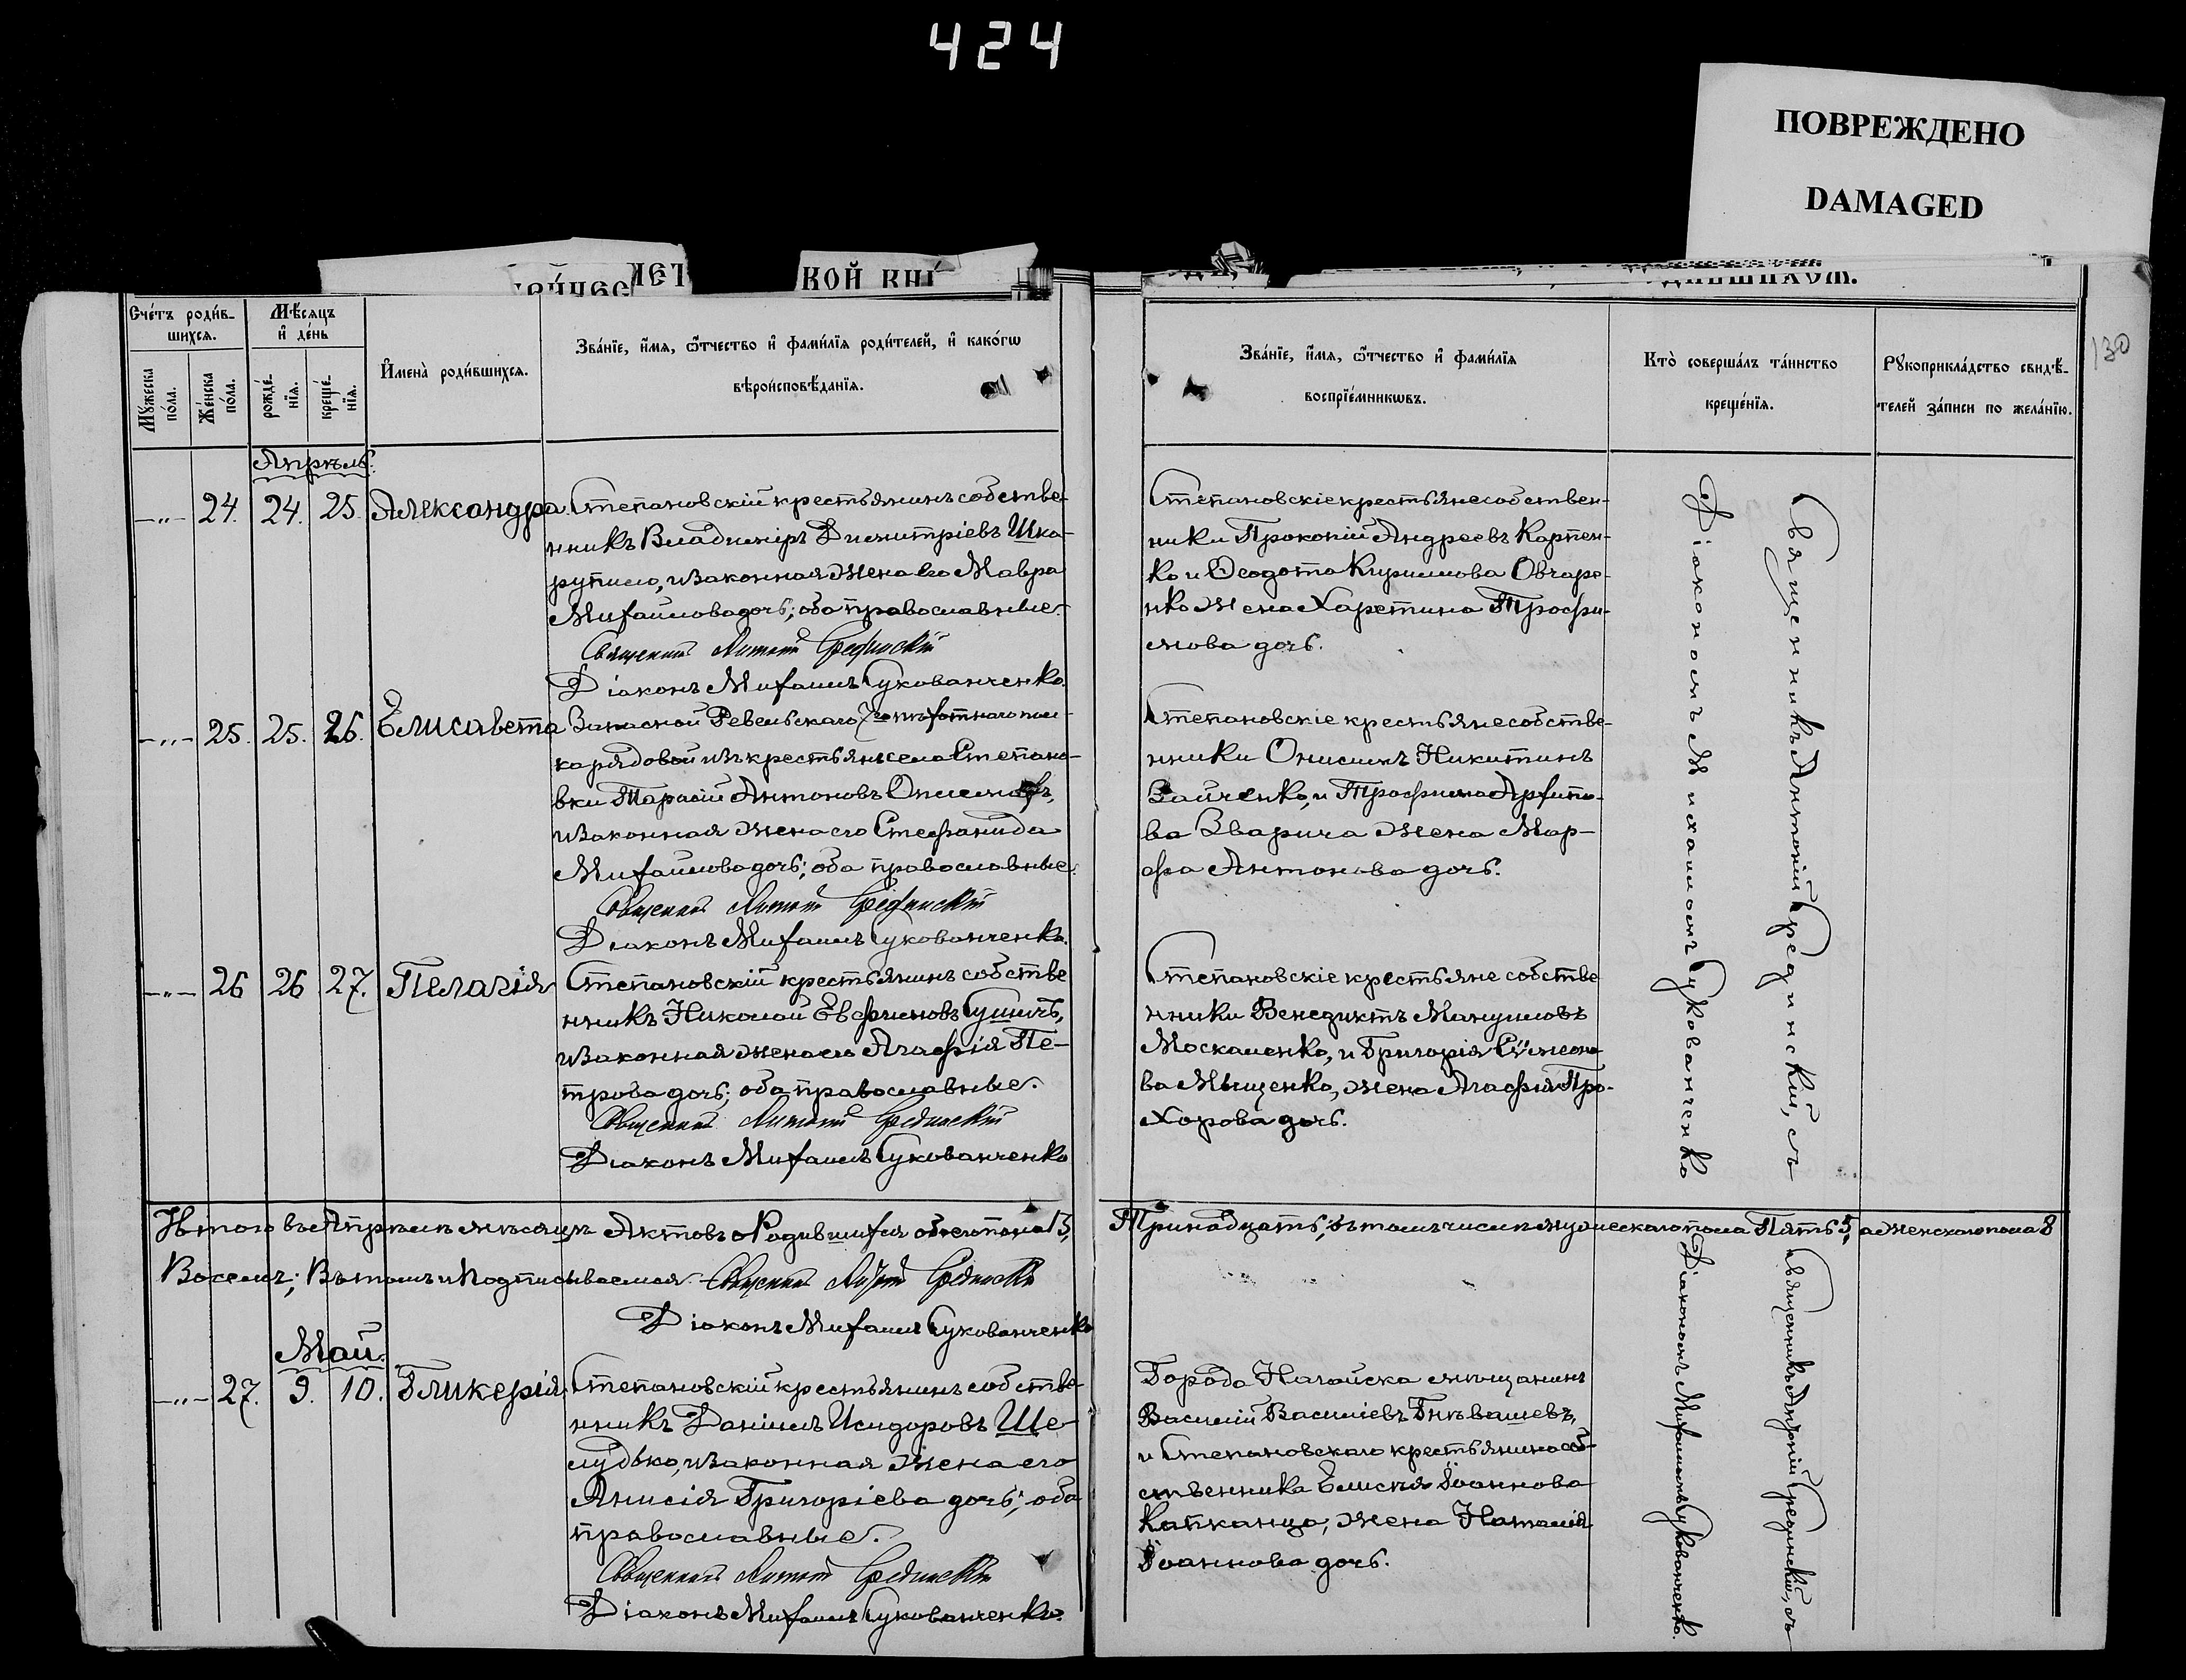 424
ПОВРЕЖДЕНО
DAMAGED
КОЙ КНИ́
130
Сче́тъ роди́в-
шихсѧ.
Мѣ́сѧцъ
и҆ де́нь
Мꙋ́жеска
по́ла.
Же́нска
по́ла.
рожде́-
нїѧ.
креще́-
нїѧ.
И҆мена̀ роди́вшихсѧ.
Зва́нїе, и҆́мѧ, ѻ҆́тчество и҆ фами́лїѧ роди́телей, и҆ како́гѡ
вѣроисповѣ́данїѧ.
Зва́нїе, и҆́мѧ, ѻ҆́тчество и҆ фами́лїѧ
воспрїе́мникѡвъ.
Кто̀ соверша́лъ та́инство
креще́нїѧ.
Рꙋкоприкла́дство свидѣ́-
телей за́писи по жела́нїю.
Апрѣль.
-„- 24. 24. 25. Александра.
Степановскій крестьянинъ собстве-
нникъ Владиміръ Димитріевъ Шка-
рупило, и законная жена его Мавра
Михайлова дочь; оба православные.
Священникъ Антоній Срединскій
Діаконъ Михаилъ Сукованченко.
Степановскіе крестьяне собствен-
ники Прокопій Андреевъ Карпен-
ко и Ѳеодота Кириллова Овчаре-
нко жена Харитина Трофи-
мова дочь.
-„- 25. 25. 26. Елисавета
Запасной Ревельскаго 7го пѣхотнаго пол-
ка рядовой изъ крестьянъ села Степано-
вки Тарасій Антоновъ
и законная жена его Стефанида
Михайлова дочь; оба православные.
Священникъ Антоній Срединскій
Діаконъ Михаилъ Сукованченко.
Степановскіе крестьяне собстве-
нники Онисимъ Никитинъ
Зайченко, и Трофима Архипо-
ва Зварича жена Мар-
фа Антонова дочь.
-„- 26 26 27. Пелагія
Степановскій крестьянинъ собстве
нникъ Николай Евфимовъ
и законная жена его Агафія Пе-
трова дочь; оба православные.
Священникъ Антоній Срединскій
Діаконъ Михаилъ Сукованченко
Степановскіе крестьяне собстве
нники Венедиктъ Мануиловъ
Москаленко, и Григорія Сѵмеоно
ва Мыщенко, жена Агафія Про-
хорова дочь.
Священникъ Антоній Срединскій, съ
Діакономъ Михаиломъ Сукованченко
Итого въ Апрѣлѣ мѣсяцѣ Актовъ о Родившихся обоего пола 13, Тринадцать; въ томъ числѣ мужескаго пола Пять 5, а женскаго пола 8
Восемь; Въ томъ и Подписываемся. Священникъ Антоній Срединскій
Діаконъ Михаилъ Сукованченко
Май.
-„- 27. 9. 10. Гликерія.
Степановскій крестьянинъ собстве-
нникъ Даніилъ Исидоровъ Ше-
лудько, и законная жена его
Анисія Григоріева дочь; оба
православные.
Священникъ Антоній Срединскій
Діаконъ Михаилъ Сукованченко.
Города Нагайска мѣщанинъ
Василій Василіевъ Гнѣвашевъ,
и Степановскаго крестьянина соб-
ственника Елисѣя Іоаннова
Капканца, жена Наталія
Іоаннова дочь.
Священникъ Антоній Срединскій, съ
Діакономъ Михаиломъ Сукованченко.